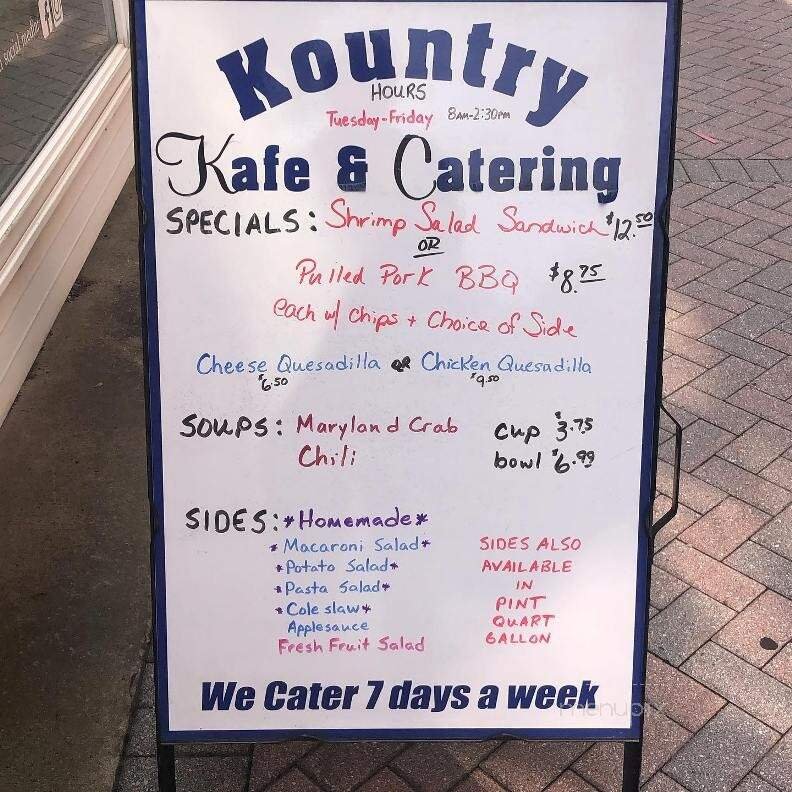 social media
Kountry
HOURS
Tuesday-Friday 8AM-2:30PM
Kafe & Catering
SPECIALS: Shrimp Salad Sandwich $12.50
OR
Pulled Pork BBQ $8.75
each w/ chips + Choice of Side
Cheese Quesadilla OR Chicken Quesadilla
$6.50 $9.50
SOUPS: Maryland Crab cup $3.75
Chili bowl $6.99
SIDES: *Homemade*
* Macaroni Salad* SIDES ALSO
* Potato Salad* AVAILABLE
* Pasta Salad* IN
* Cole slaw* PINT
Applesauce QUART
Fresh Fruit Salad GALLON
We Cater 7 days a week
menupix